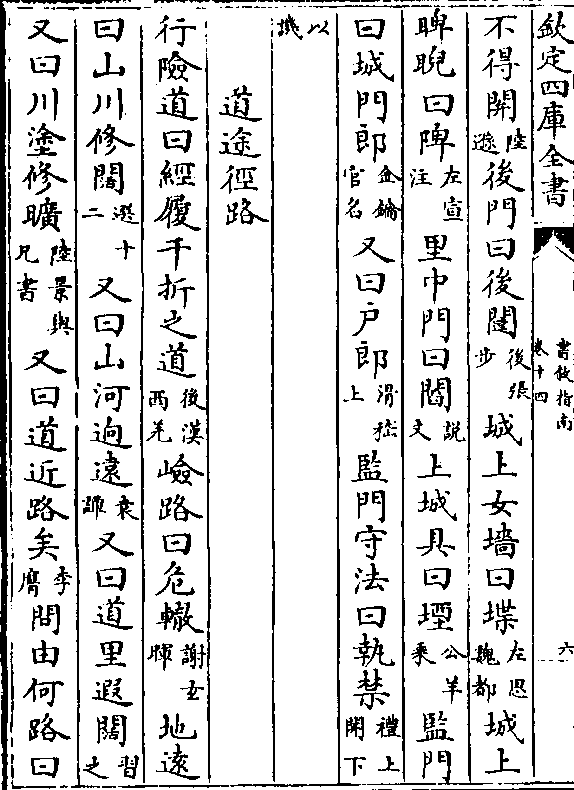 欽定四庫全書
書敘指南
卷十四
六
不得開陸遜後門曰後闥後張步城上女墻曰堞左思魏都城上
睥睨曰陴左宣注里中門曰閻說文上城具曰堙公羊乘監門
曰城門郎金鑰官名又曰户郎滑稽上監門守法曰執禁禮上閽下
以幾
道途徑路
行險道曰經履千折之道後漢西羌嶮路曰危轍謝女暉地遠
曰山川修闊選十二又曰山河逈遠袁譚又曰道里遐闊習之
又曰川塗修曠陸景與兄書又曰道近路矣李膺問由何路曰